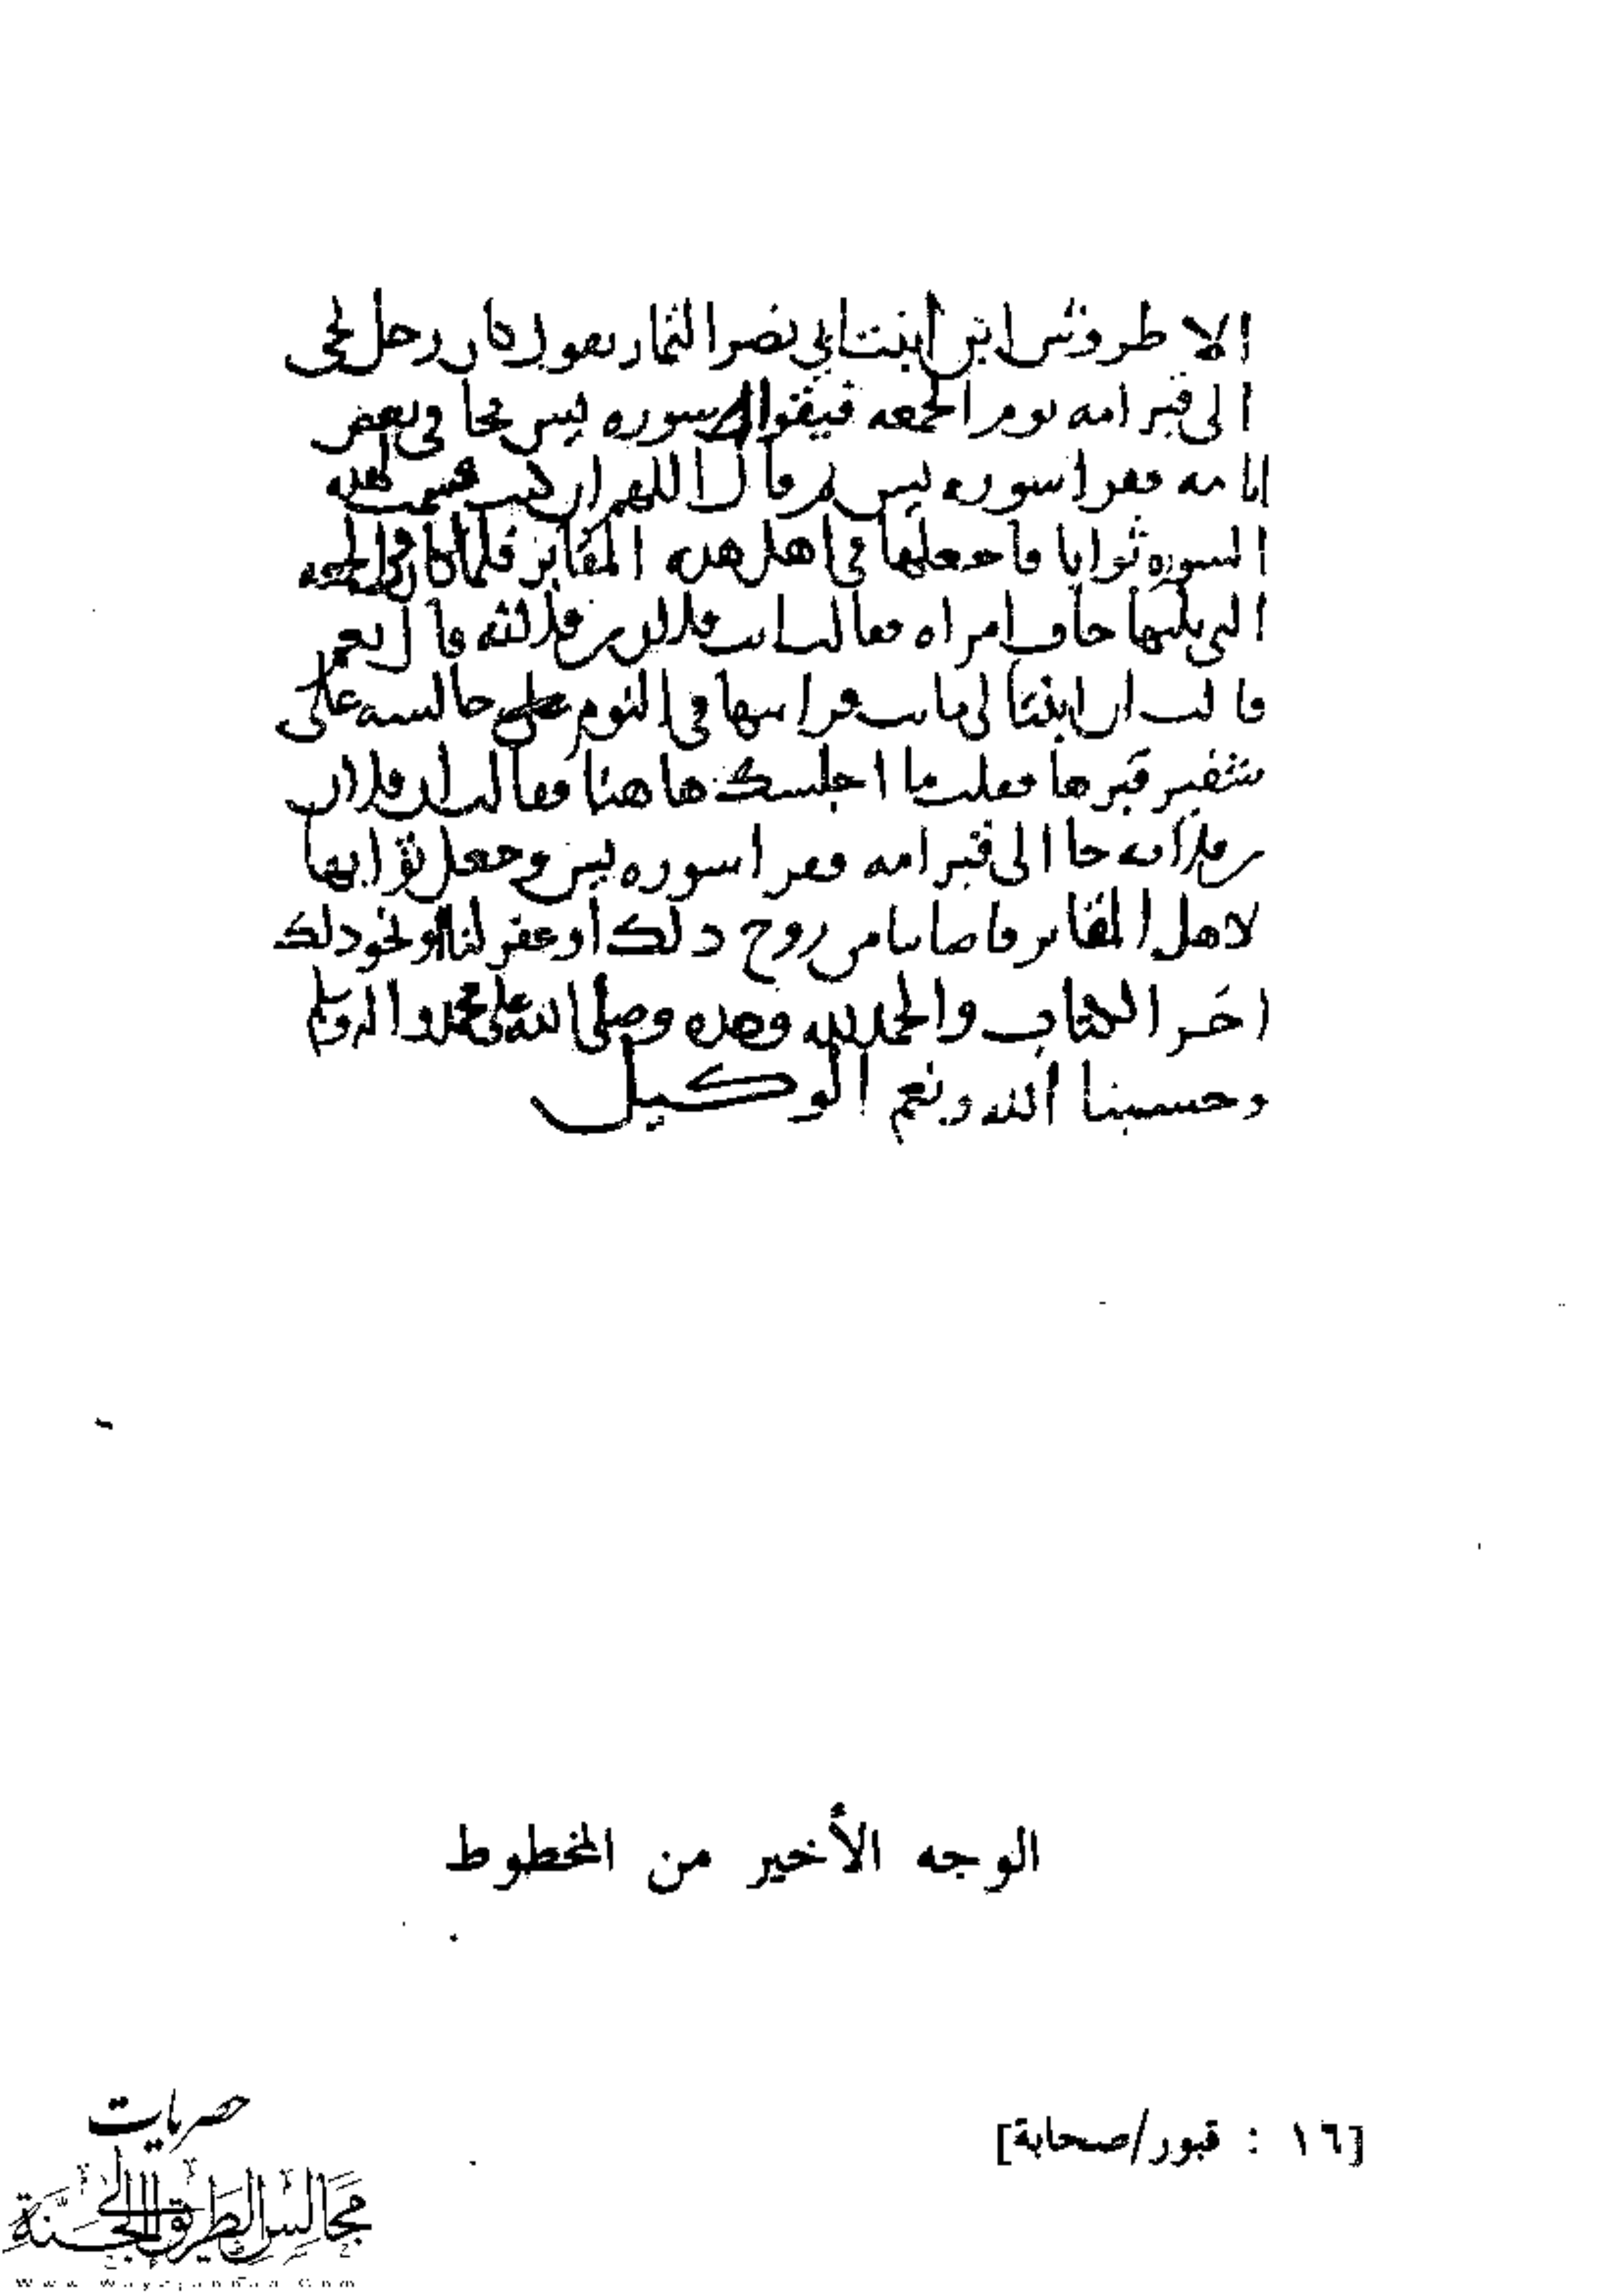 الاطروش ابن ابنت ابي نصر التمار يقول كان رجل يجي
الى قبر امه يوم الجمعه فيقرا سوره يس فجا في بعض
ايامه فقرا سوره يس ثم قال اللهم ان كنت قسمت لهذه
السوره ثوابا فاجعلها في اهل هذه المقابر فلما كان في الجمعه
التي يليها جات امراه فقالت انت فلان بن فلانه قال نعم
قالت ان ابنتا لي ماتت فرايتها في النوم جالسه على
شفير قبرها فقلت ما اجلسك هاهنا فقالت ان فلان
بن فلانه جا الى قبر امه فقرا سوره يس وجعل ثوابها
لاهل المقابر فاصابنا من روح ذلك او غفر لنا او نحو ذلك
اخر الكتاب والحمد لله وحده وصلى الله على محمد واله وسلم
وحسبنا الله ونعم الوكيل
الوجه الأخير من المخطوط
[١٦ : قبور/صحابة]
حصريات
مجالس الطريق إلى الجنة
www.way2jannah.com